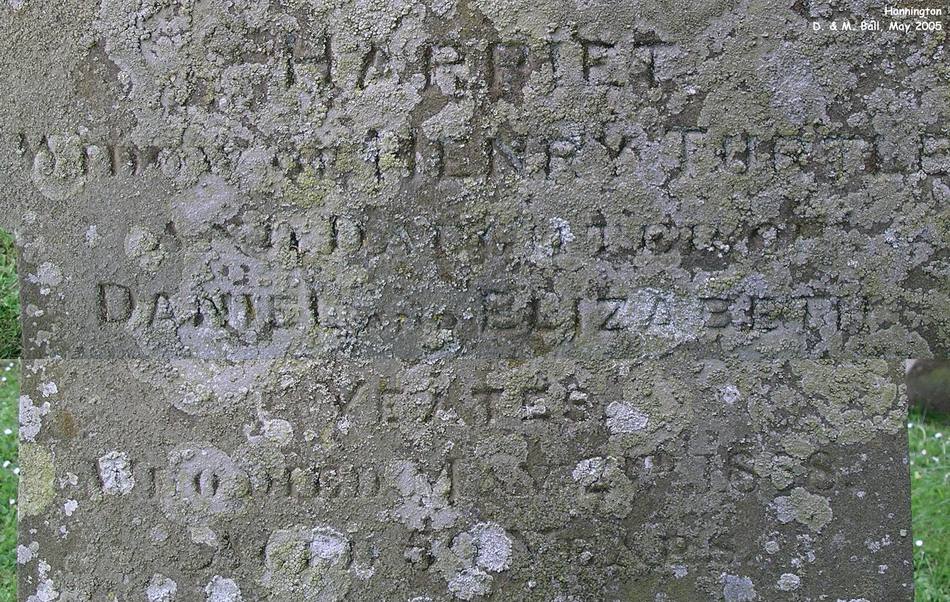 Hannington
D. & M. Ball, May 2005
HARRIET
WIDOW OF HENRY TURTLE
AND DAUGHTER OF
DANIEL AND ELIZABETH
YEATES
WHO DIED 1888
AGED YEARS